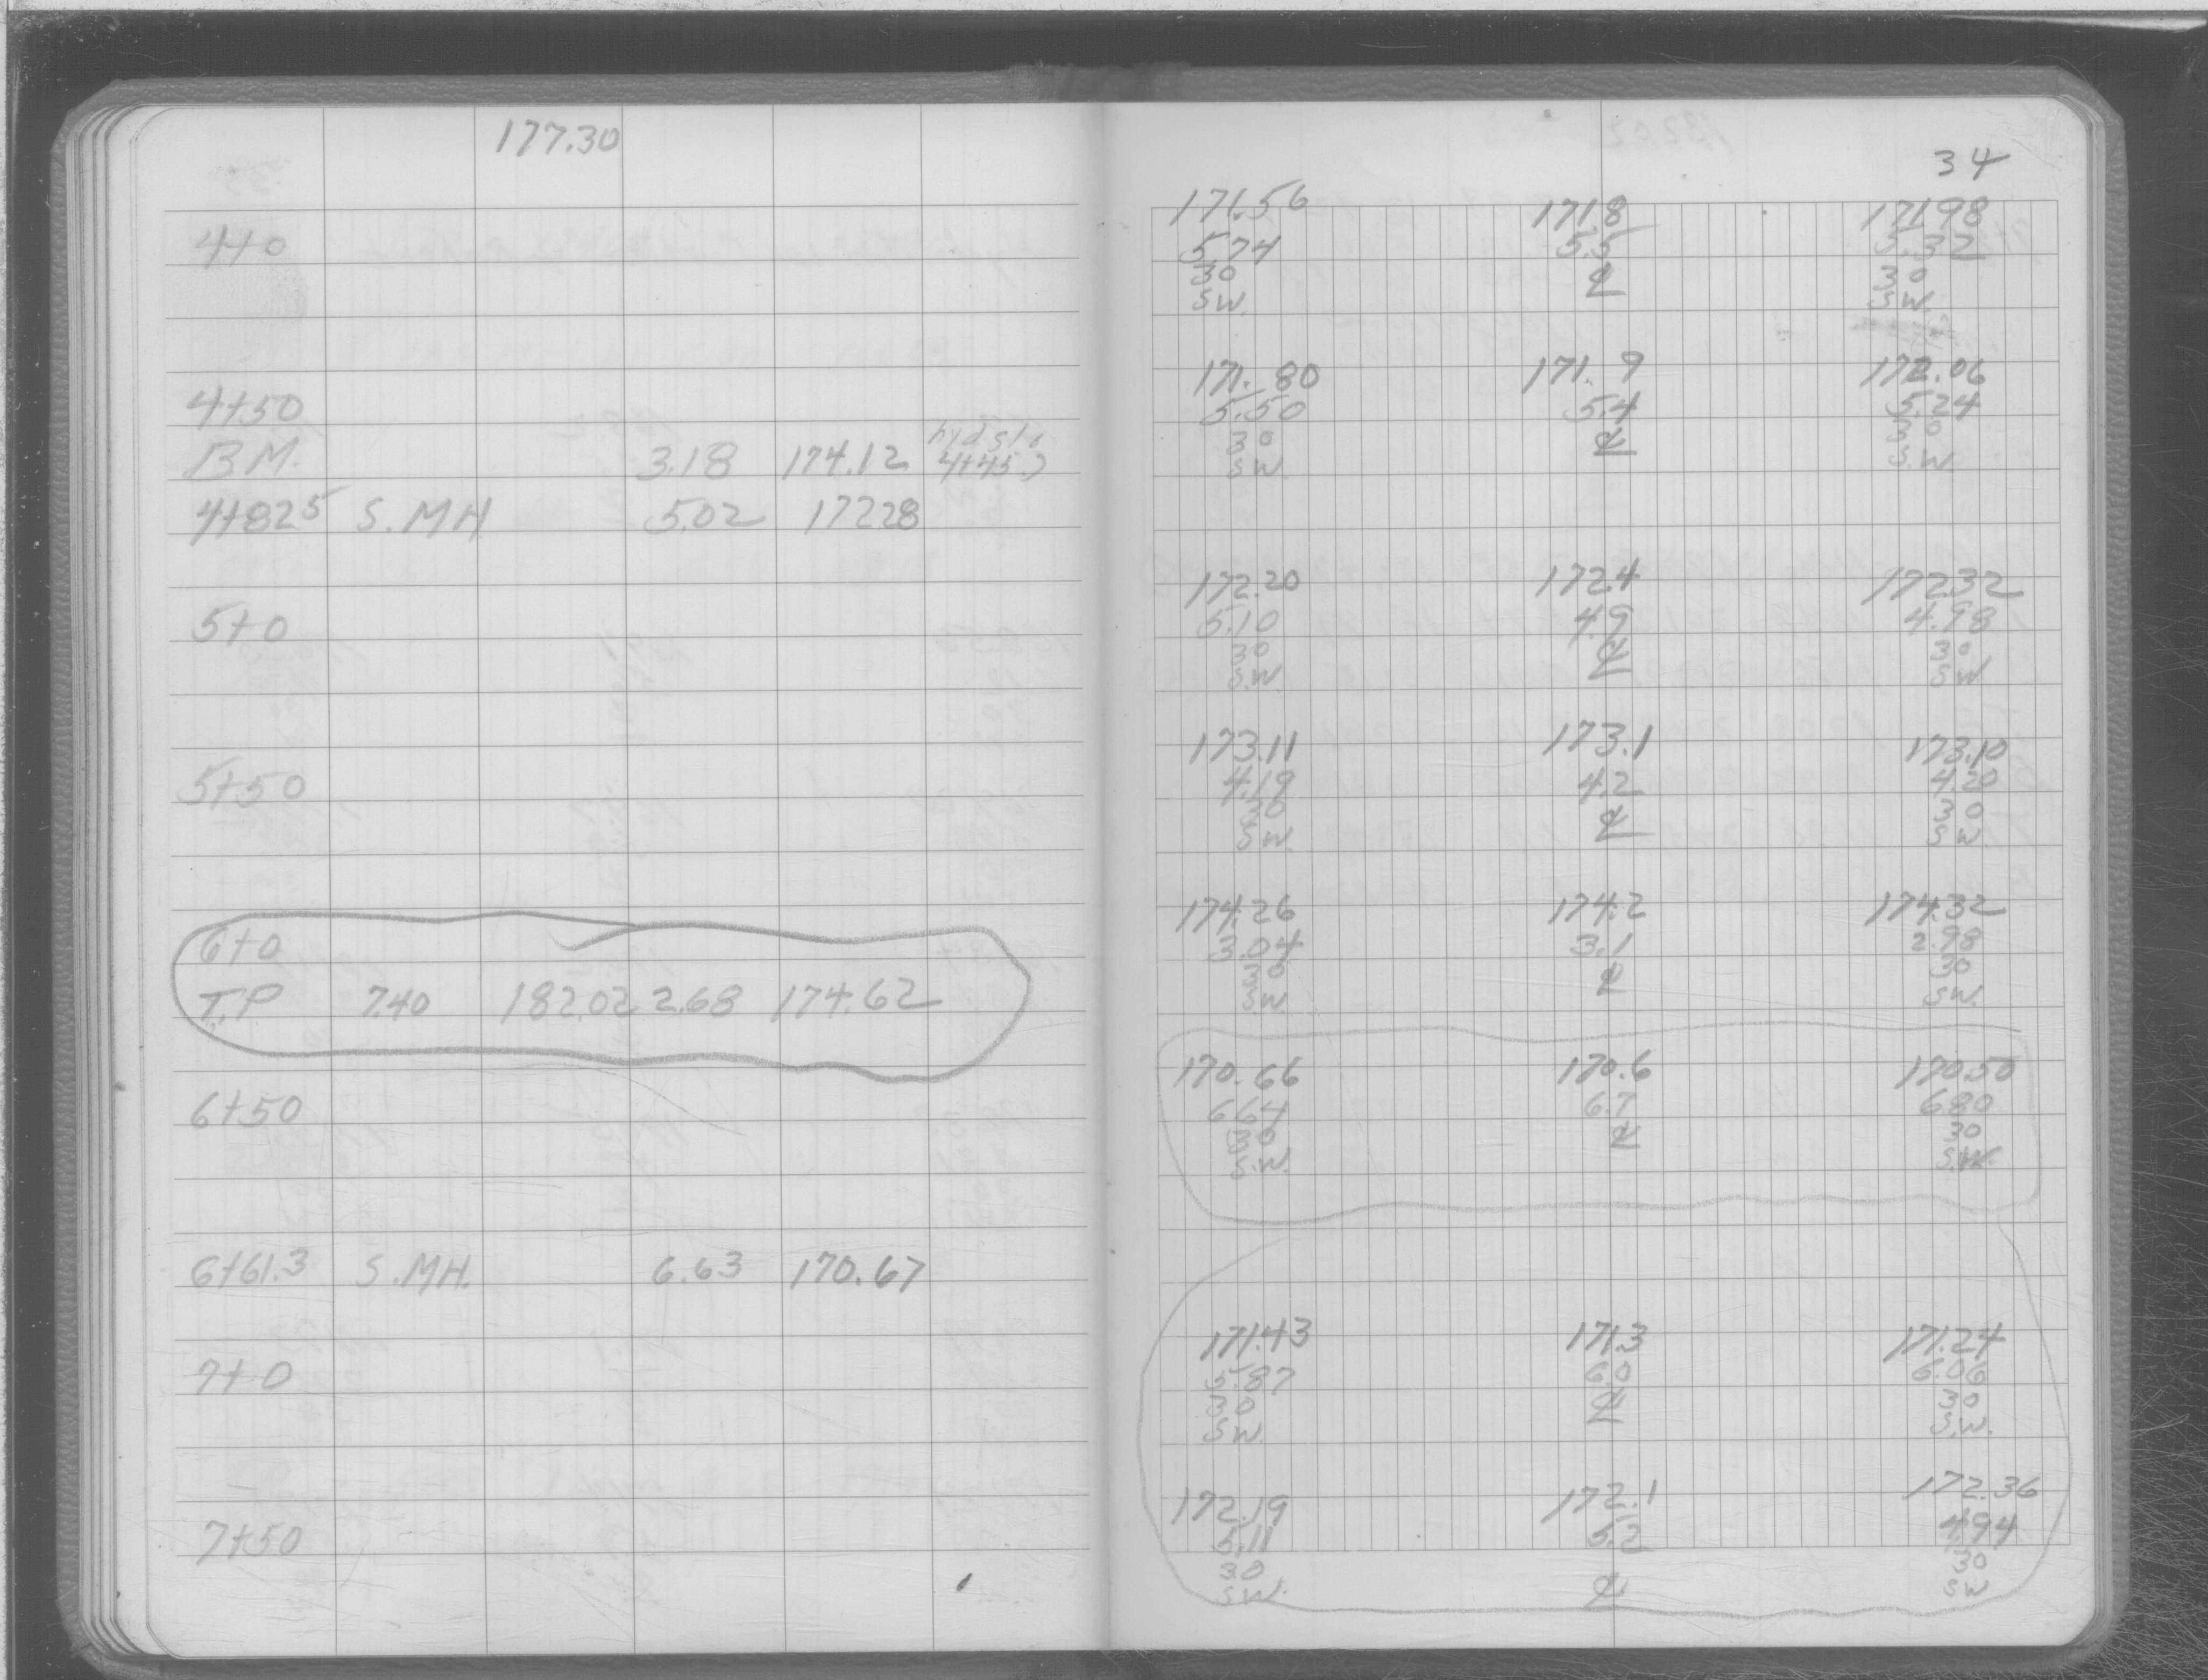 177.30
4+0
4+50
B.M. 3.18 174.12
4+45
4+82.5 S.MH 5.02 172.28
5+0
5+50
6+0
T.P 7.40 182.02 2.68 174.62
6+50
6+61.3 S.MH. 6.63 170.67
7+0
7+50
34
171.56 171.8 171.98
5.74 5.5 5.32
30 ℄ 30
SW. SW.
171.80 171.9 172.06
5.50 5.4 5.24
30 ℄ 30
SW. S.W.
172.20 172.4 172.32
5.10 4.9 4.98
30 ℄ 30
S.W. SW
173.11 173.1 173.10
4.19 4.2 4.20
30 ℄ 30
SW. SW.
174.26 174.2 174.32
3.04 3.1 2.98
30 ℄ 30
SW. SW.
170.66 170.6 170.50
6.64 6.7 6.80
30 ℄ 30
S.W. S.W.
171.43 171.3 171.24
5.87 6.0 6.06
30 ℄ 30
SW. S.W.
172.19 172.1 172.36
5.11 5.2 4.94
30 ℄ 30
SW. SW